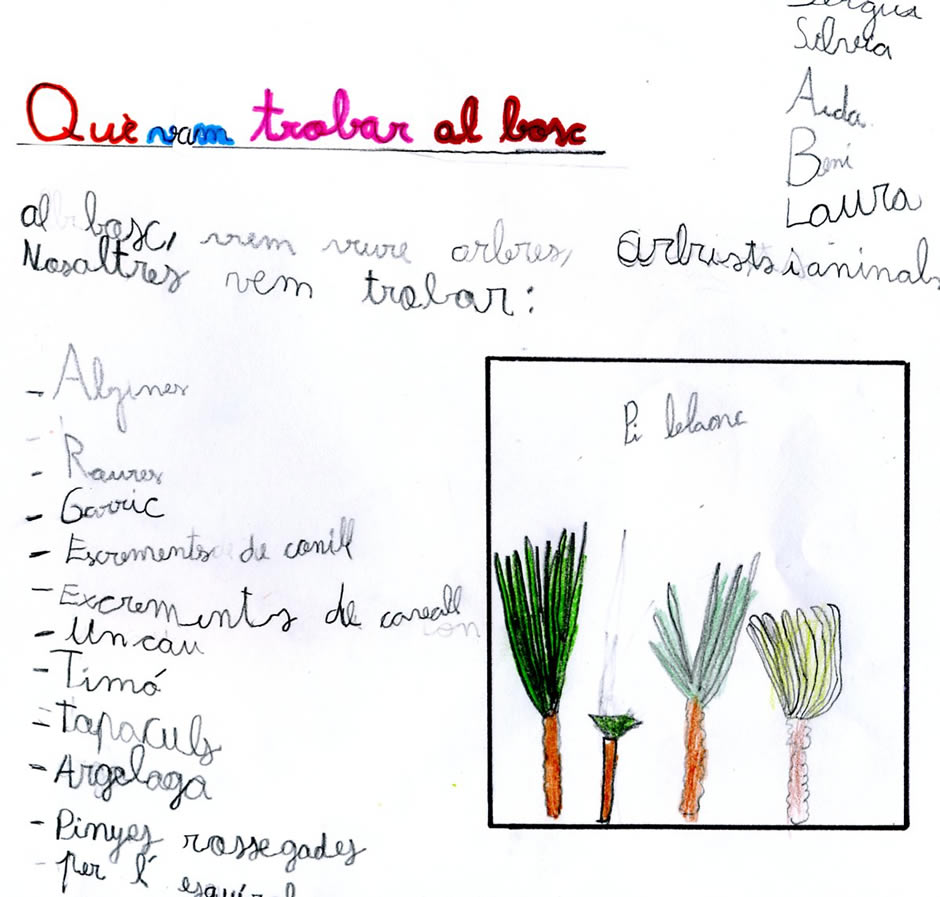 Silvia
Aida
Beni
Laura
Què vam trobar al bosc
al bosc, vrem veure arbres, arbusts i aninals
Nosaltres vem trobar:
- Alzines
- Roures
- Garric
- Escrements de conill
- Excrements de cavall
- Un cau
- Timó
- tapaculs
- Argelaga
- Pinyes rossegades
- per l'
Pi blanc